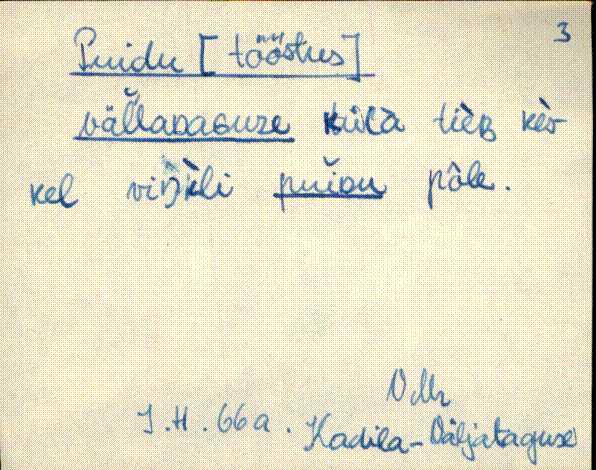 3
Puidu [tööstus]
vällaDaGuze külà tièʙ kèr-
kel viŋ̀kli puiDu põle.
VMr
I.H. 66 a. Kadila-Väljataguse